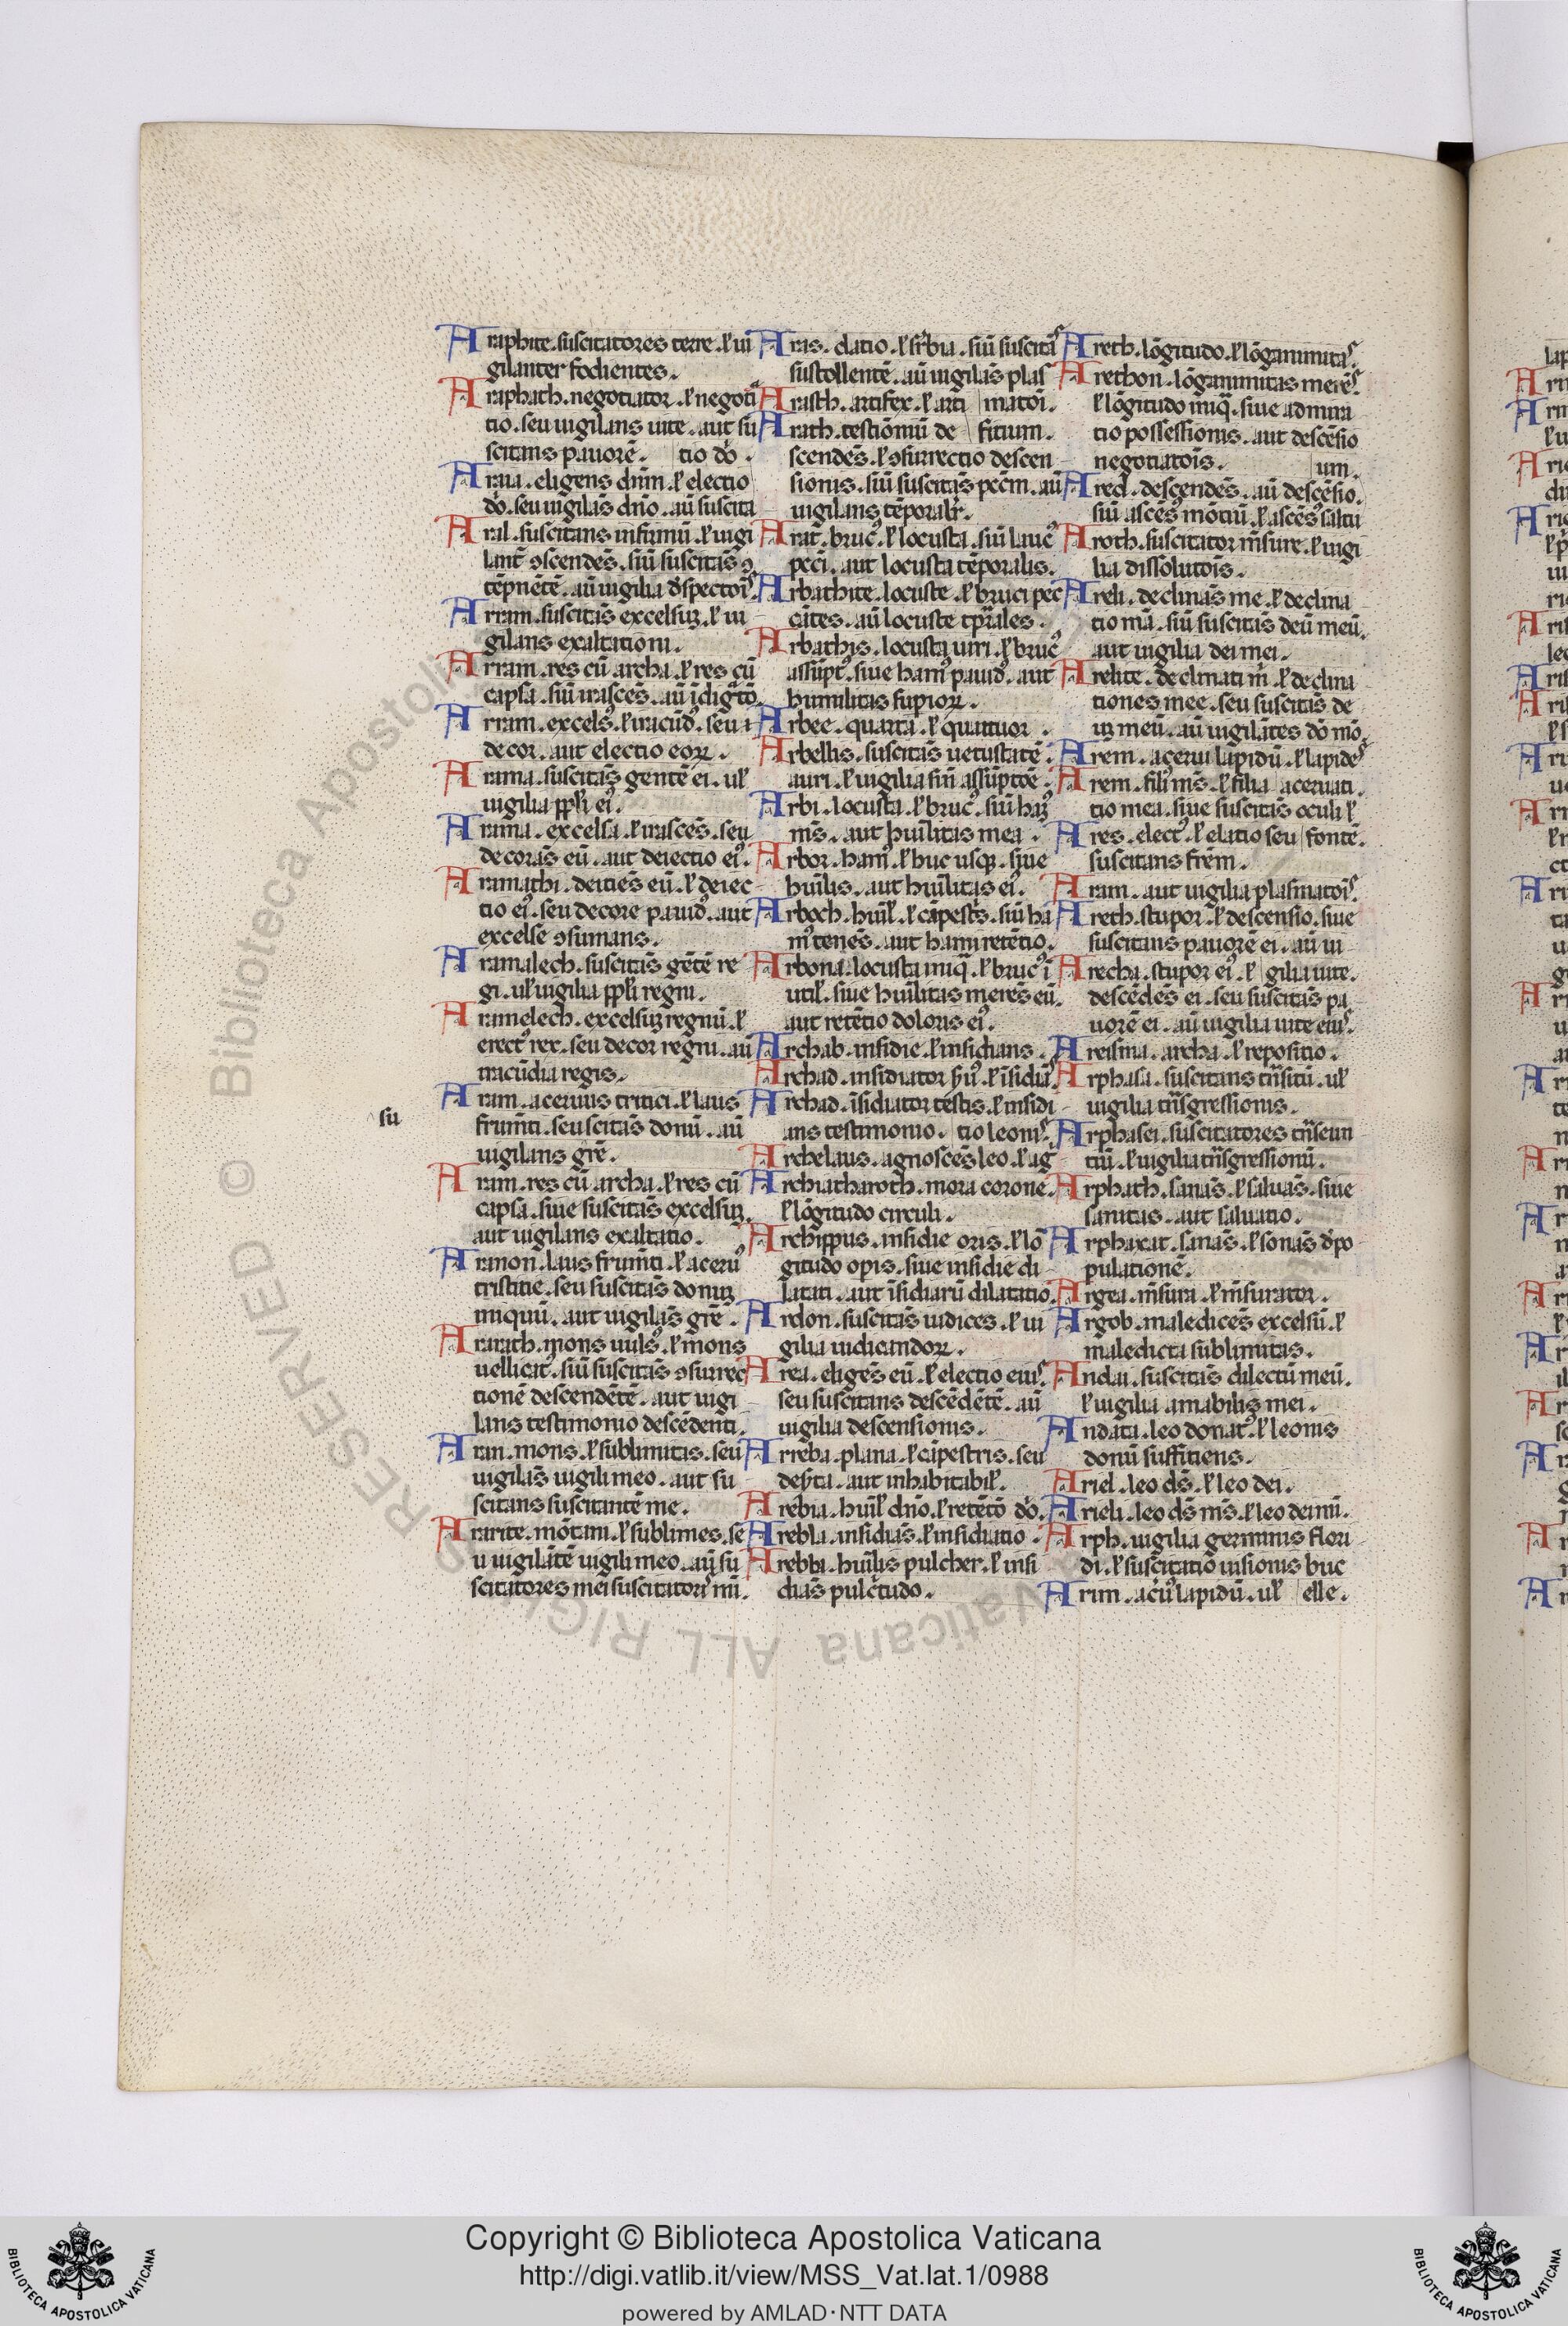 Araphite. suscitatores terre. ł ui
gilanter fodientes.
Araphath. negotiator. ł negotia
tio. seu uigilans uite. aut su
scitans pauorē. tio dō.
Araia. eligens dnm̄. ł electio
dō. seu uigilās dn̄o. aū suscita
Aral. suscitans infirmū. ł uigi
lant̄ ꝯscendēs. siū suscitās ꝯ
tēpnētē. aū uigilia
Arram. suscitās excelsuꝫ. ł ui
gilans exaltationi.
Arram. res cū archa. ł res cū
capsa. siū irascēs. aū
Arram. excelsꝰ. ł iracūdꝰ. seu i
decor. aut electio eoꝝ.
Arama. suscitās gentē ei. ul̄
uigilia ppl̄i eiꝰ.
Arama. excelsa. ł irascēs. seu
decorās eū. aut deiectio eiꝰ.
Aramathi. deiciēs eū. ł deiec
tio eiꝰ. seu decore pauidꝰ. aut
excelse ꝯsumans.
Aramalech. suscitās gētē re
gi. ul̄ uigilia ppl̄i regni.
Aramelech. excelsuꝫ regnū. ł
erectꝰ rex. seu decor regni. aū
iracūdia regis.
Aram. aceruus tritici. ł laus
su
frumt̄i. seu scitās donū. aū
uigilans grē.
Aram. res cū archa. ł res cū
capsa. siue suscitās excelsuꝫ.
aut uigilans exaltatio.
Aranon. laus frumt̄i. ł aceruꝰ
tristitie. seu suscitās donuꝫ
iniquū. aut uigilās grē.
Ararath. mons uulsꝰ. ł mons
uellicatꝰ. siū suscitās ꝯsurrec
tionē descendētē. aut uigi
lans testimonio descēdenti.
Aran. mons. ł sublimitas. seu
uigilās uigili meo. aut su
scitans suscitantē me.
Ararite. mōtani. ł sublimes. se
u uigilātē uigili meo. aū su
scitatores mei suscitatorꝰ mī.
Aras. elatio. ł sr̄bia. siū suscitās
sustollentē. aū uigilās plas
Arasch. artifex. ł arti matoī.
Arath. testiōmū de fitium.
scendēs. ł ꝯsurrectio descen
sionis. siū suscitās pecm̄. aū
uigilans tēporalr̄.
Arat̄. brucꝰ. ł locusta. siū
peci. aut locusta tēporalis.
Arbathite. locuste. ł bruci pec
cātes. aū locuste tpr̄ales.
Arbathis. locusta uiri. ł brucꝰ
assūptꝰ. siue hamꝰ pauidꝰ. aut
humilitas supioꝝ.
Arbee. quarta. ł quattuor.
Arbellis. suscitās uetustatē.
auri. ł uigilia sui assūptōe.
Arbi. locusta. ł brucꝰ. siū hamꝰ
mīs. aut huīlitas mea.
Arbor. hamꝰ. ł huc usqꝫ. siue
huīlis. aut huīlitas eiꝰ.
Arboch. huīl̄. ł cāpestˢ. siū ha
mꝰ tenēs. aut hami retētio.
Arbona. locusta iniq̄. ł brucꝰ ī
util̄. siue huīlitas merēs eū.
aut retētio doloris eiꝰ.
Archab. insidie. ł insidians.
Archad. insidiator ł īsidiās.
Archad. īsidiator testis. ł insidi
ans testimonio. tio leonis.
Archelaus. agnoscēs leo. ł ag
Archiatharoth. mora corone.
ł lōgitudo circuli.
Archippus. insidie oris. ł lō
gitudo opis. siue insidie di
latati. aut īsidiarū dilatatio.
Ardon. suscitās iudices. ł ui
gilia iudicandoꝝ.
Area. eligēs eū. ł electio eius.
seu suscitans descēdētē. aū
uigilia descensionis.
Arreba. plana. ł cāpestris. seu
aut inhabitabil̄.
Arebia. huīl̄ dn̄o. ł retētō dō.
Arebla. insidiās. ł insidiatio.
Arebbi. huīlis pulcher. ł insi
diās pulc̄tudo.
Areth. lōgitudo. ł lōganimitas.
Arethon. lōganimitas merēs
ł lōgitudo iniq̄. siue admira
tio possessionis. aut descēsio
negotiatoīs. um.
Ared. descendēs. aū descēsio.
siū ascēsꝰ mōtiū. ł ascēsꝰ saltu
Aroth. suscitator mn̄sure. ł uigi
lia dissolutoīs.
Areli. declinās me. ł declina
tio mā. siū suscitās deū meū.
aut uigilia dei mei.
Arelite. declinati m̄. ł declina
tiones mee. seu suscitās de
uꝫ meū. aū uigilātes dō mō.
Arem. acerui lapidū. ł lapides
Arem. filꝰ mīs. ł filia aceruati.
tio mea. siue suscitās oculi ł
Ares. electꝰ. ł elatio seu fontē.
suscitans frēm.
Aram. aut uigilia plasmatoīs.
Areth. stupor. ł descensio. siue
suscitans pauorē ei. aū ui
Arecha. stupor eiꝰ. ł gilia uite.
descēdēs ei. seu suscitās pa
uorē ei. aū uigilia uite eius.
Areisina. archa. ł repositio.
Arphasa. suscitans trn̄situ. ul̄
uigilia trn̄sgressionis.
Arphasei. suscitatores trn̄seun
tiū. ł uigilia trn̄sgressionū.
Arphath. sanās. ł saluās. siue
sanitas. aut saluatio.
Arphaxat. sanās. ł sonās dꝑo
pulationē.
Argea. mn̄sura. ł mn̄surator.
Argob. maledicēs excelsū. ł
maledicta sublimitas.
Andai. suscitās dilectū meū.
ł uigilia amabilis mei.
Andata. leo donatꝰ. ł leonis
donū suffitiens.
Ariel. leo ds̄. ł leo dei.
Arieli. leo ds̄ ms̄. ł leo dei mī.
Arph. uigilia germinis flori
di. ł suscitatio uisionis buc
Arim. acūꝰ lapidū. ul̄ elle.
Copyright © Biblioteca Apostolica Vaticana
http://digi.vatlib.it/view/MSS_Vat.lat.1/0988
powered by AMLAD·NTT DATA